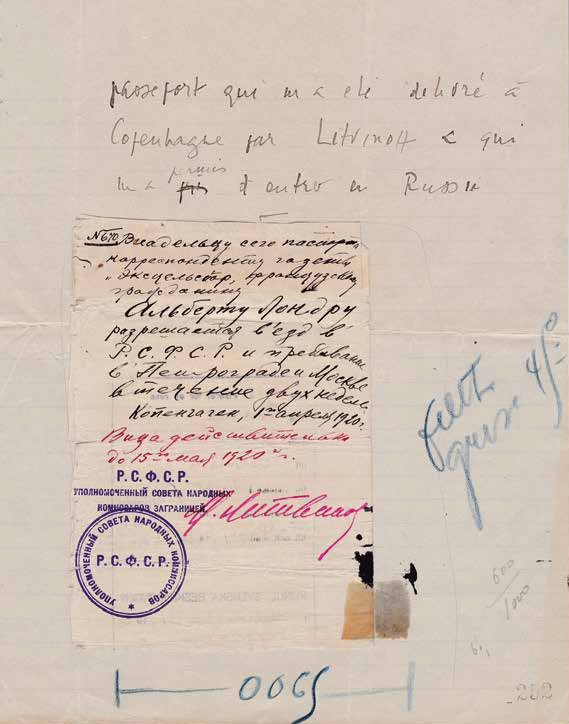 passeport qui m'a été délivré à
Copenhague par Litvinoff & qui
m'a permis d'entrer en Russie
№670. Владельцу сего паспорта,
корреспонденту газеты
"Эксцельсиор", французскому
гражданину
Альберту Лондру
разрешается въезд в
Р.С.Ф.С.Р. и пребывание
в Петрограде и Москве
в течение двух недель.
Копенгаген, 1го апреля 1920г.
Виза действительна
до 15го мая 1920 г.
Р.С.Ф.С.Р.
УПОЛНОМОЧЕННЫЙ СОВЕТА НАРОДНЫХ
КОМИССАРОВ ЗАГРАНИЦЕЙ
М. Литвинов
УПОЛНОМОЧЕННЫЙ СОВЕТА НАРОДНЫХ КОМИССАРОВ
Р.С.Ф.С.Р.
45
600
1000
0065
202